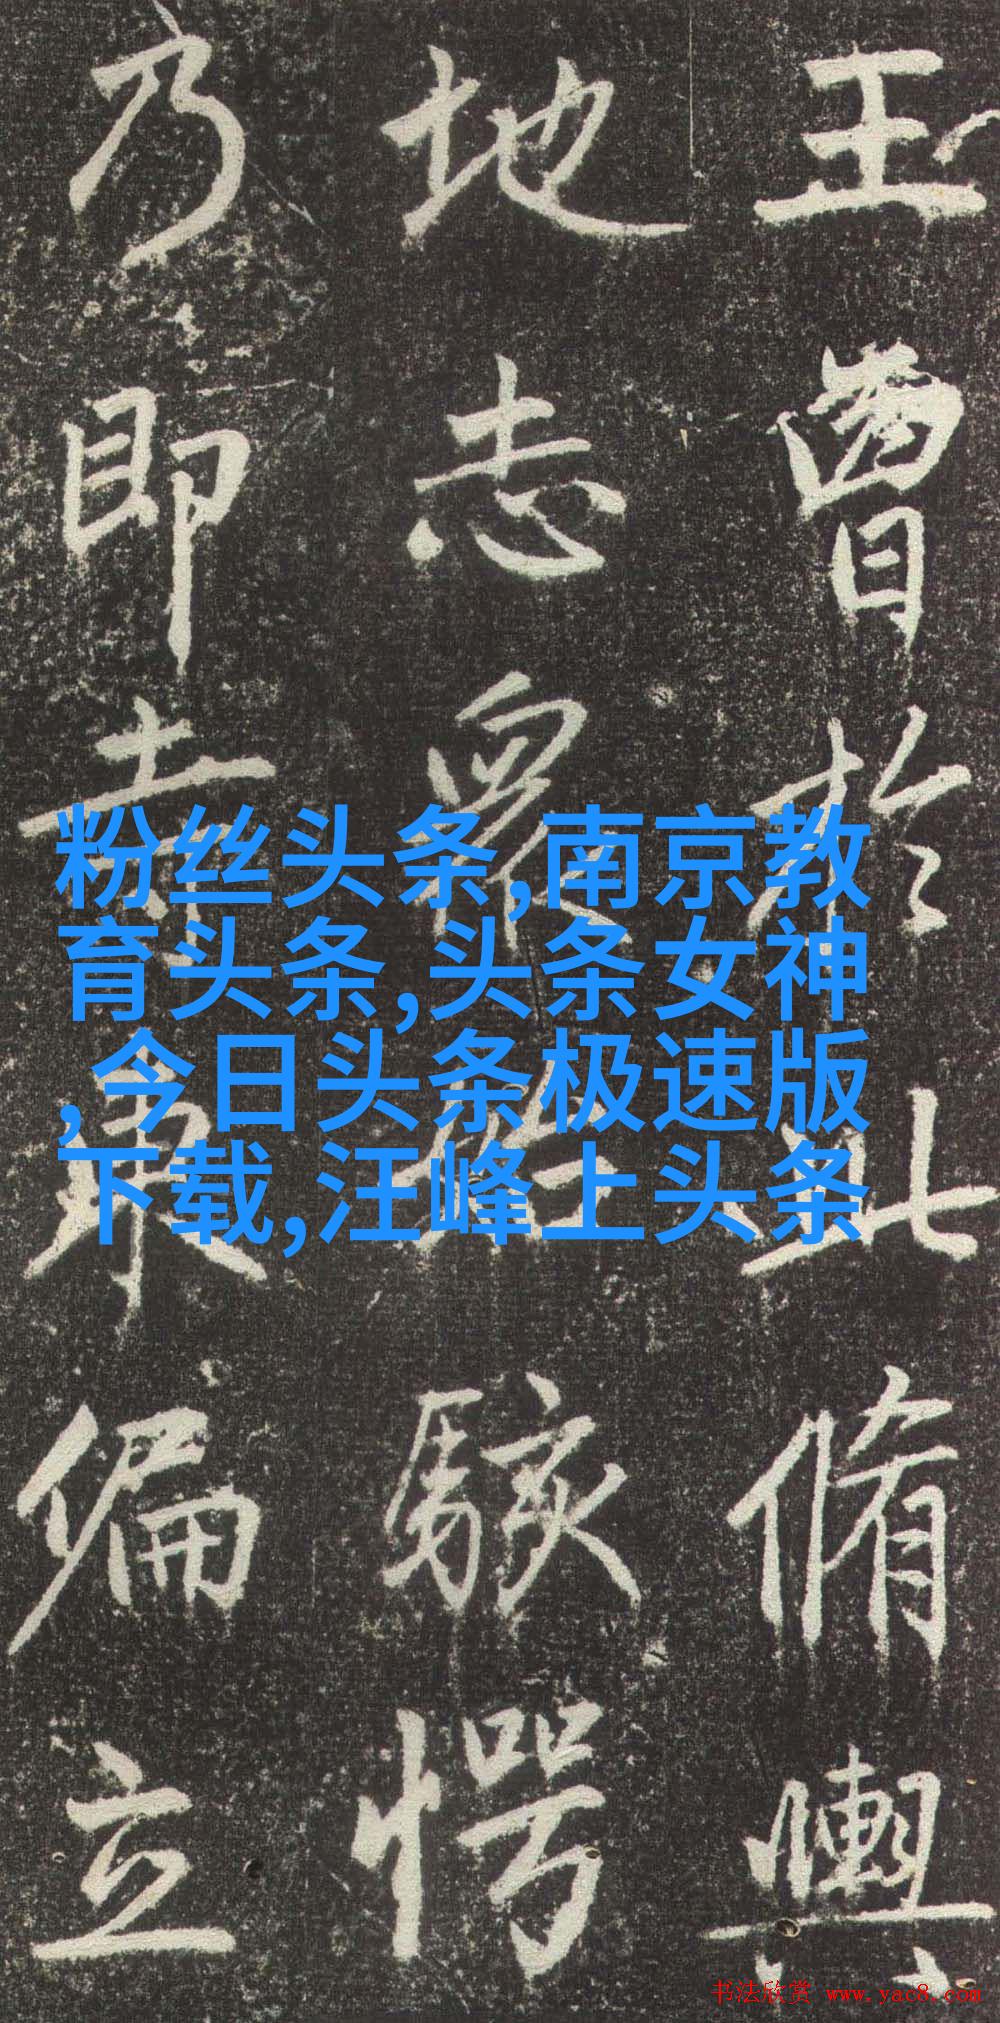 王曾於此脩輿
地志衆始駭愕
乃即寺東偏立
粉丝头条,南京教
育头条,头条女神
,今日头条极速版
下载,汪峰上头条
书法欣赏 www.yac8.com